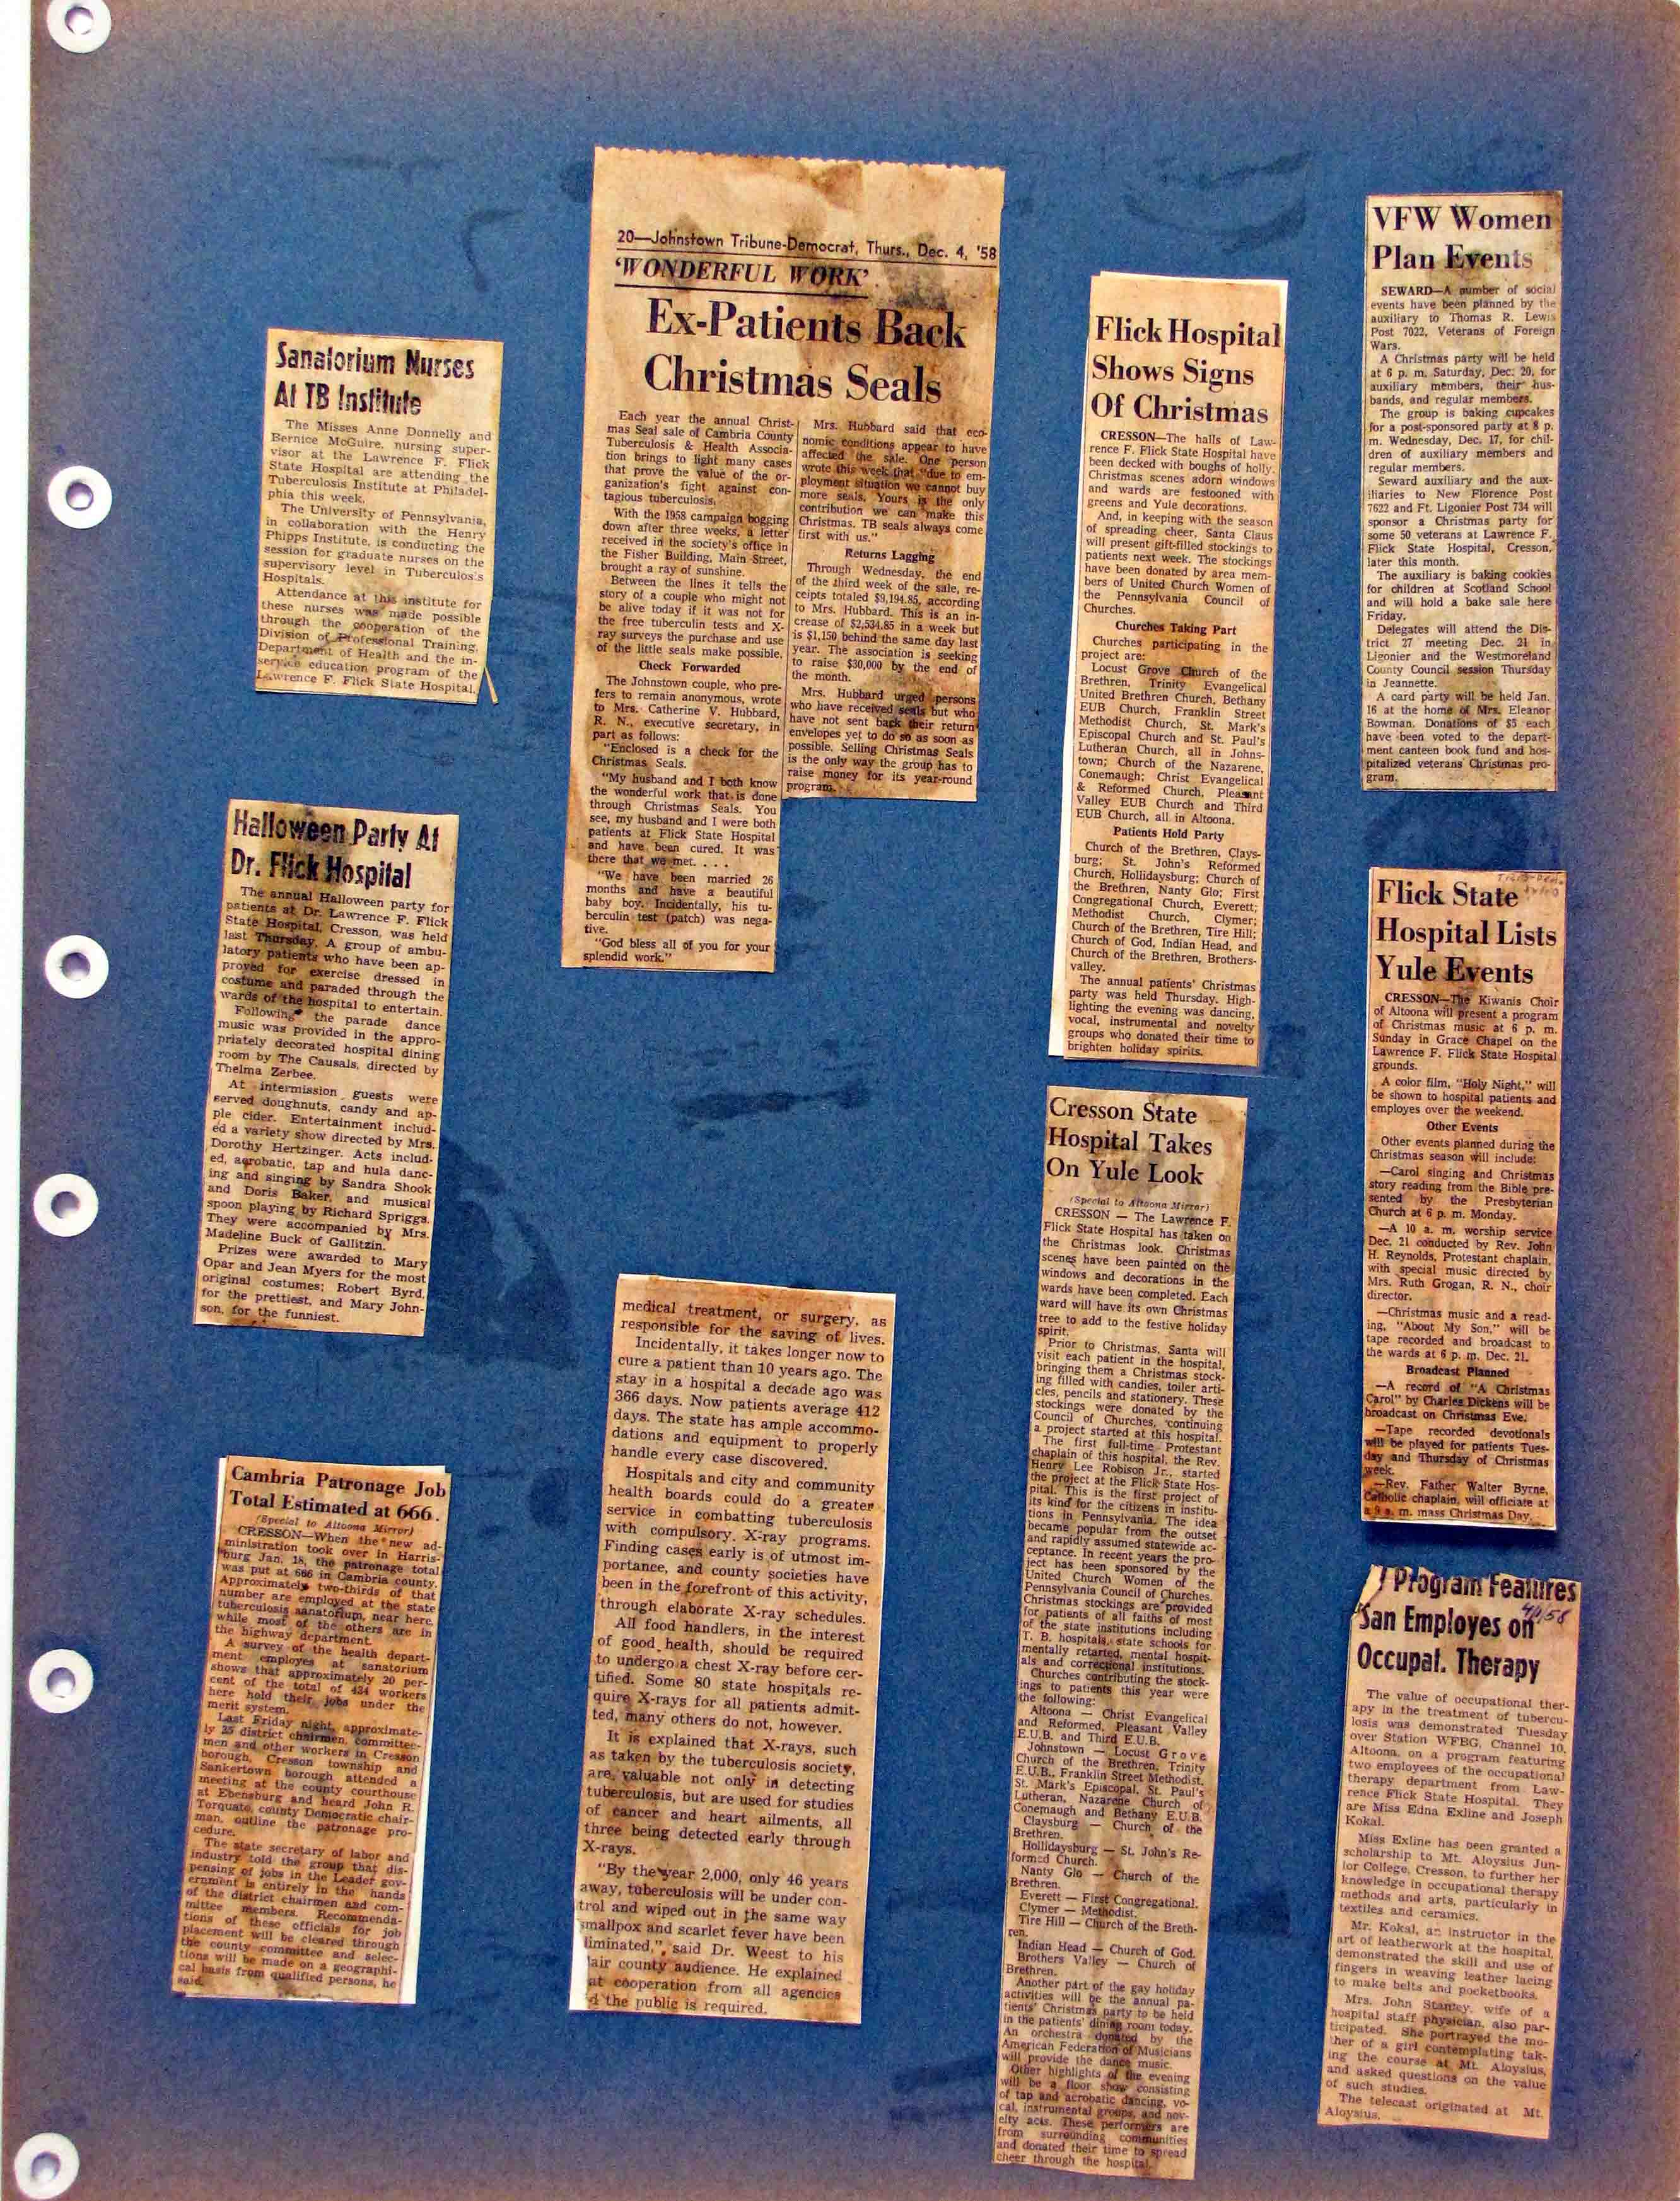 Sanatorium Nurses
At TB Institute
The Misses Anne Donnelly and
Bernice McGuire, nursing super-
visor at the Lawrence F. Flick
State Hospital are attending the
Tuberculosis Institute at Philadel-
phia this week.
The University of Pennsylvania,
in collaboration with the Henry
Phipps Institute, is conducting the
session for graduate nurses on the
supervisory level in Tuberculosis
Hospitals.
Attendance at this institute for
these nurses was made possible
through the cooperation of the
Division of Professional Training,
Department of Health and the in-
service education program of the
Lawrence F. Flick State Hospital.
Halloween Party At
Dr. Flick Hospital
The annual Halloween party for
patients at Dr. Lawrence F. Flick
State Hospital, Cresson, was held
last Thursday. A group of ambu-
latory patients who have been ap-
proved for exercise dressed in
costume and paraded through the
wards of the hospital to entertain.
Following the parade dance
music was provided in the appro-
priately decorated hospital dining
room by The Causals, directed by
Thelma Zerbee.
At intermission guests were
served doughnuts, candy and ap-
ple cider. Entertainment includ-
ed a variety show directed by Mrs.
Dorothy Hertzinger. Acts includ-
ed, acrobatic, tap and hula danc-
ing and singing by Sandra Shook
and Doris Baker, and musical
spoon playing by Richard Spriggs.
They were accompanied by Mrs.
Madeline Buck of Gallitzin.
Prizes were awarded to Mary
Opar and Jean Myers for the most
original costumes; Robert Byrd,
for the prettiest, and Mary John-
son, for the funniest.
Cambria Patronage Job
Total Estimated at 666.
(Special to Altoona Mirror)
CRESSON—When the new ad-
ministration took over in Harris-
burg Jan. 18, the patronage total
was put at 666 in Cambria county.
Approximately two-thirds of that
number are employed at the state
tuberculosis sanatorium, near here,
while most of the others are in
the highway department.
A survey of the health depart-
ment employes at sanatorium
shows that approximately 20 per-
cent of the total of 434 workers
here hold their jobs under the
merit system.
Last Friday night, approximate-
ly 25 district chairmen, committee-
men and other workers in Cresson
borough, Cresson township and
Sankertown borough attended a
meeting at the county courthouse
at Ebensburg and heard John R.
Torquato, county Democratic chair-
man, outline the patronage pro-
cedure.
The state secretary of labor and
industry told the group that dis-
pensing of jobs in the Leader gov-
ernment is entirely in the hands
of the district chairmen and com-
mittee members. Recommenda-
tions of these officials for job
placement will be cleared through
the county committee and selec-
tions will be made on a geographi-
cal basis from qualified persons, he
said.
20—Johnstown Tribune-Democrat, Thurs., Dec. 4, '58
'WONDERFUL WORK'
Ex-Patients Back
Christmas Seals
Each year the annual Christ-
mas Seal sale of Cambria County
Tuberculosis & Health Associa-
tion brings to light many cases
that prove the value of the or-
ganization's fight against con-
tagious tuberculosis.
With the 1958 campaign bogging
down after three weeks, a letter
received in the society's office in
the Fisher Building, Main Street,
brought a ray of sunshine.
Between the lines it tells the
story of a couple who might not
be alive today if it was not for
the free tuberculin tests and X-
ray surveys the purchase and use
of the little seals make possible.
Check Forwarded
The Johnstown couple, who pre-
fers to remain anonymous, wrote
to Mrs. Catherine V. Hubbard,
R. N., executive secretary, in
part as follows:
"Enclosed is a check for the
Christmas Seals.
"My husband and I both know
the wonderful work that is done
through Christmas Seals. You
see, my husband and I were both
patients at Flick State Hospital
and have been cured. It was
there that we met. . . .
"We have been married 26
months and have a beautiful
baby boy. Incidentally, his tu-
berculin test (patch) was nega-
tive.
"God bless all of you for your
splendid work."
Mrs. Hubbard said that eco-
nomic conditions appear to have
affected the sale. One person
wrote this week that "due to em-
ployment situation we cannot buy
more seals. Yours is the only
contribution we can make this
Christmas. TB seals always come
first with us."
Returns Lagging
Through Wednesday, the end
of the third week of the sale, re-
ceipts totaled $9,194.85, according
to Mrs. Hubbard. This is an in-
crease of $2,534.85 in a week but
is $1,150 behind the same day last
year. The association is seeking
to raise $30,000 by the end of
the month.
Mrs. Hubbard urged persons
who have received seals but who
have not sent back their return
envelopes yet to do so as soon as
possible. Selling Christmas Seals
is the only way the group has to
raise money for its year-round
program.
medical treatment, or surgery, as
responsible for the saving of lives.
Incidentally, it takes longer now to
cure a patient than 10 years ago. The
stay in a hospital a decade ago was
366 days. Now patients average 412
days. The state has ample accommo-
dations and equipment to properly
handle every case discovered.
Hospitals and city and community
health boards could do a greater
service in combatting tuberculosis
with compulsory X-ray programs.
Finding cases early is of utmost im-
portance, and county societies have
been in the forefront of this activity,
through elaborate X-ray schedules.
All food handlers, in the interest
of good health, should be required
to undergo a chest X-ray before cer-
tified. Some 80 state hospitals re-
quire X-rays for all patients admit-
ted, many others do not, however.
It is explained that X-rays, such
as taken by the tuberculosis society,
are valuable not only in detecting
tuberculosis, but are used for studies
of cancer and heart ailments, all
three being detected early through
X-rays.
"By the year 2,000, only 46 years
away, tuberculosis will be under con-
trol and wiped out in the same way
smallpox and scarlet fever have been
liminated," said Dr. Weest to his
lair county audience. He explained
at cooperation from all agencies
d the public is required.
Flick Hospital
Shows Signs
Of Christmas
CRESSON—The halls of Law-
rence F. Flick State Hospital have
been decked with boughs of holly.
Christmas scenes adorn windows
and wards are festooned with
greens and Yule decorations.
And, in keeping with the season
of spreading cheer, Santa Claus
will present gift-filled stockings to
patients next week. The stockings
have been donated by area mem-
bers of United Church Women of
the Pennsylvania Council of
Churches.
Churches Taking Part
Churches participating in the
project are:
Locust Grove Church of the
Brethren, Trinity Evangelical
United Brethren Church, Bethany
EUB Church, Franklin Street
Methodist Church, St. Mark's
Episcopal Church and St. Paul's
Lutheran Church, all in Johns-
town; Church of the Nazarene,
Conemaugh; Christ Evangelical
& Reformed Church, Pleasant
Valley EUB Church and Third
EUB Church, all in Altoona.
Patients Hold Party
Church of the Brethren, Clays-
burg; St. John's Reformed
Church, Hollidaysburg; Church of
the Brethren, Nanty Glo; First
Congregational Church, Everett;
Methodist Church, Clymer;
Church of the Brethren, Tire Hill;
Church of God, Indian Head, and
Church of the Brethren, Brothers-
valley.
The annual patients' Christmas
party was held Thursday. High-
lighting the evening was dancing,
vocal, instrumental and novelty
groups who donated their time to
brighten holiday spirits.
Cresson State
Hospital Takes
On Yule Look
(Special to Altoona Mirror)
CRESSON — The Lawrence F.
Flick State Hospital has taken on
the Christmas look. Christmas
scenes have been painted on the
windows and decorations in the
wards have been completed. Each
ward will have its own Christmas
tree to add to the festive holiday
spirit.
Prior to Christmas, Santa will
visit each patient in the hospital,
bringing them a Christmas stock-
ing filled with candies, toiler arti-
cles, pencils and stationery. These
stockings were donated by the
Council of Churches, continuing
a project started at this hospital.
The first full-time Protestant
chaplain of this hospital, the Rev.
Henry Lee Robison Jr., started
the project at the Flick State Hos-
pital. This is the first project of
its kind for the citizens in institu-
tions in Pennsylvania. The idea
became popular from the outset
and rapidly assumed statewide ac-
ceptance. In recent years the pro-
ject has been sponsored by the
United Church Women of the
Pennsylvania Council of Churches.
Christmas stockings are provided
for patients of all faiths of most
of the state institutions including
T. B. hospitals, state schools for
mentally retarted, mental hospit-
als and correctional institutions.
Churches contributing the stock-
ings to patients this year were
the following:
Altoona — Christ Evangelical
and Reformed, Pleasant Valley
E.U.B. and Third E.U.B.
Johnstown — Locust Grove
Church of the Brethren, Trinity
E.U.B., Franklin Street Methodist,
St. Mark's Episcopal, St. Paul's
Lutheran, Nazarene Church of
Conemaugh and Bethany E.U.B.
Claysburg — Church of the
Brethren.
Hollidaysburg — St. John's Re-
formed Church.
Nanty Glo — Church of the
Brethren.
Everett — First Congregational.
Clymer — Methodist.
Tire Hill — Church of the Breth-
ren.
Indian Head — Church of God.
Brothers Valley — Church of
Brethren.
Another part of the gay holiday
activities will be the annual pa-
tients' Christmas party to be held
in the patients' dining room today.
An orchestra donated by the
American Federation of Musicians
will provide the dance music.
Other highlights of the evening
will be a floor show consisting
of tap and acrobatic dancing, vo-
cal, instrumental groups, and nov-
elty acts. These performers are
from surrounding communities
and donated their time to spread
cheer through the hospital.
VFW Women
Plan Events
SEWARD—A number of social
events have been planned by the
auxiliary to Thomas R. Lewis
Post 7022, Veterans of Foreign
Wars.
A Christmas party will be held
at 6 p. m. Saturday, Dec. 20, for
auxiliary members, their hus-
bands, and regular members.
The group is baking cupcakes
for a post-sponsored party at 8 p.
m. Wednesday, Dec. 17, for chil-
dren of auxiliary members and
regular members.
Seward auxiliary and the aux-
iliaries to New Florence Post
7622 and Ft. Ligonier Post 734 will
sponsor a Christmas party for
some 50 veterans at Lawrence F.
Flick State Hospital, Cresson,
later this month.
The auxiliary is baking cookies
for children at Scotland School
and will hold a bake sale here
Friday.
Delegates will attend the Dis-
trict 27 meeting Dec. 21 in
Ligonier and the Westmoreland
County Council session Thursday
in Jeannette.
A card party will be held Jan.
16 at the home of Mrs. Eleanor
Bowman. Donations of $5 each
have been voted to the depart-
ment canteen book fund and hos-
pitalized veterans Christmas pro-
gram.
Flick State
Hospital Lists
Yule Events
CRESSON—The Kiwanis Choir
of Altoona will present a program
of Christmas music at 6 p. m.
Sunday in Grace Chapel on the
Lawrence F. Flick State Hospital
grounds.
A color film, "Holy Night," will
be shown to hospital patients and
employes over the weekend.
Other Events
Other events planned during the
Christmas season will include:
—Carol singing and Christmas
story reading from the Bible pre-
sented by the Presbyterian
Church at 6 p. m. Monday.
—A 10 a. m. worship service
Dec. 21 conducted by Rev. John
H. Reynolds, Protestant chaplain,
with special music directed by
Mrs. Ruth Grogan, R. N., choir
director.
—Christmas music and a read-
ing, "About My Son," will be
tape recorded and broadcast to
the wards at 6 p. m. Dec. 21.
Broadcast Planned
—A record of "A Christmas
Carol" by Charles Dickens will be
broadcast on Christmas Eve.
—Tape recorded devotionals
will be played for patients Tues-
day and Thursday of Christmas
week.
—Rev. Father Walter Byrne,
Catholic chaplain, will officiate at
a 9 a. m. mass Christmas Day.
Program Features
San Employes on 4/1/58
Occupat. Therapy
The value of occupational ther-
apy in the treatment of tubercu-
losis was demonstrated Tuesday
over Station WFBG, Channel 10,
Altoona, on a program featuring
two employees of the occupational
therapy department from Law-
rence Flick State Hospital. They
are Miss Edna Exline and Joseph
Kokal.
Miss Exline has been granted a
scholarship to Mt. Aloysius Jun-
ior College, Cresson, to further her
knowledge in occupational therapy
methods and arts, particularly in
textiles and ceramics.
Mr. Kokal, an instructor in the
art of leatherwork at the hospital,
demonstrated the skill and use of
fingers in weaving leather lacing
to make belts and pocketbooks.
Mrs. John Stanley, wife of a
hospital staff physician, also par-
ticipated. She portrayed the mo-
ther of a girl contemplating tak-
ing the course at Mt. Aloysius,
and asked questions on the value
of such studies.
The telecast originated at Mt.
Aloysius.